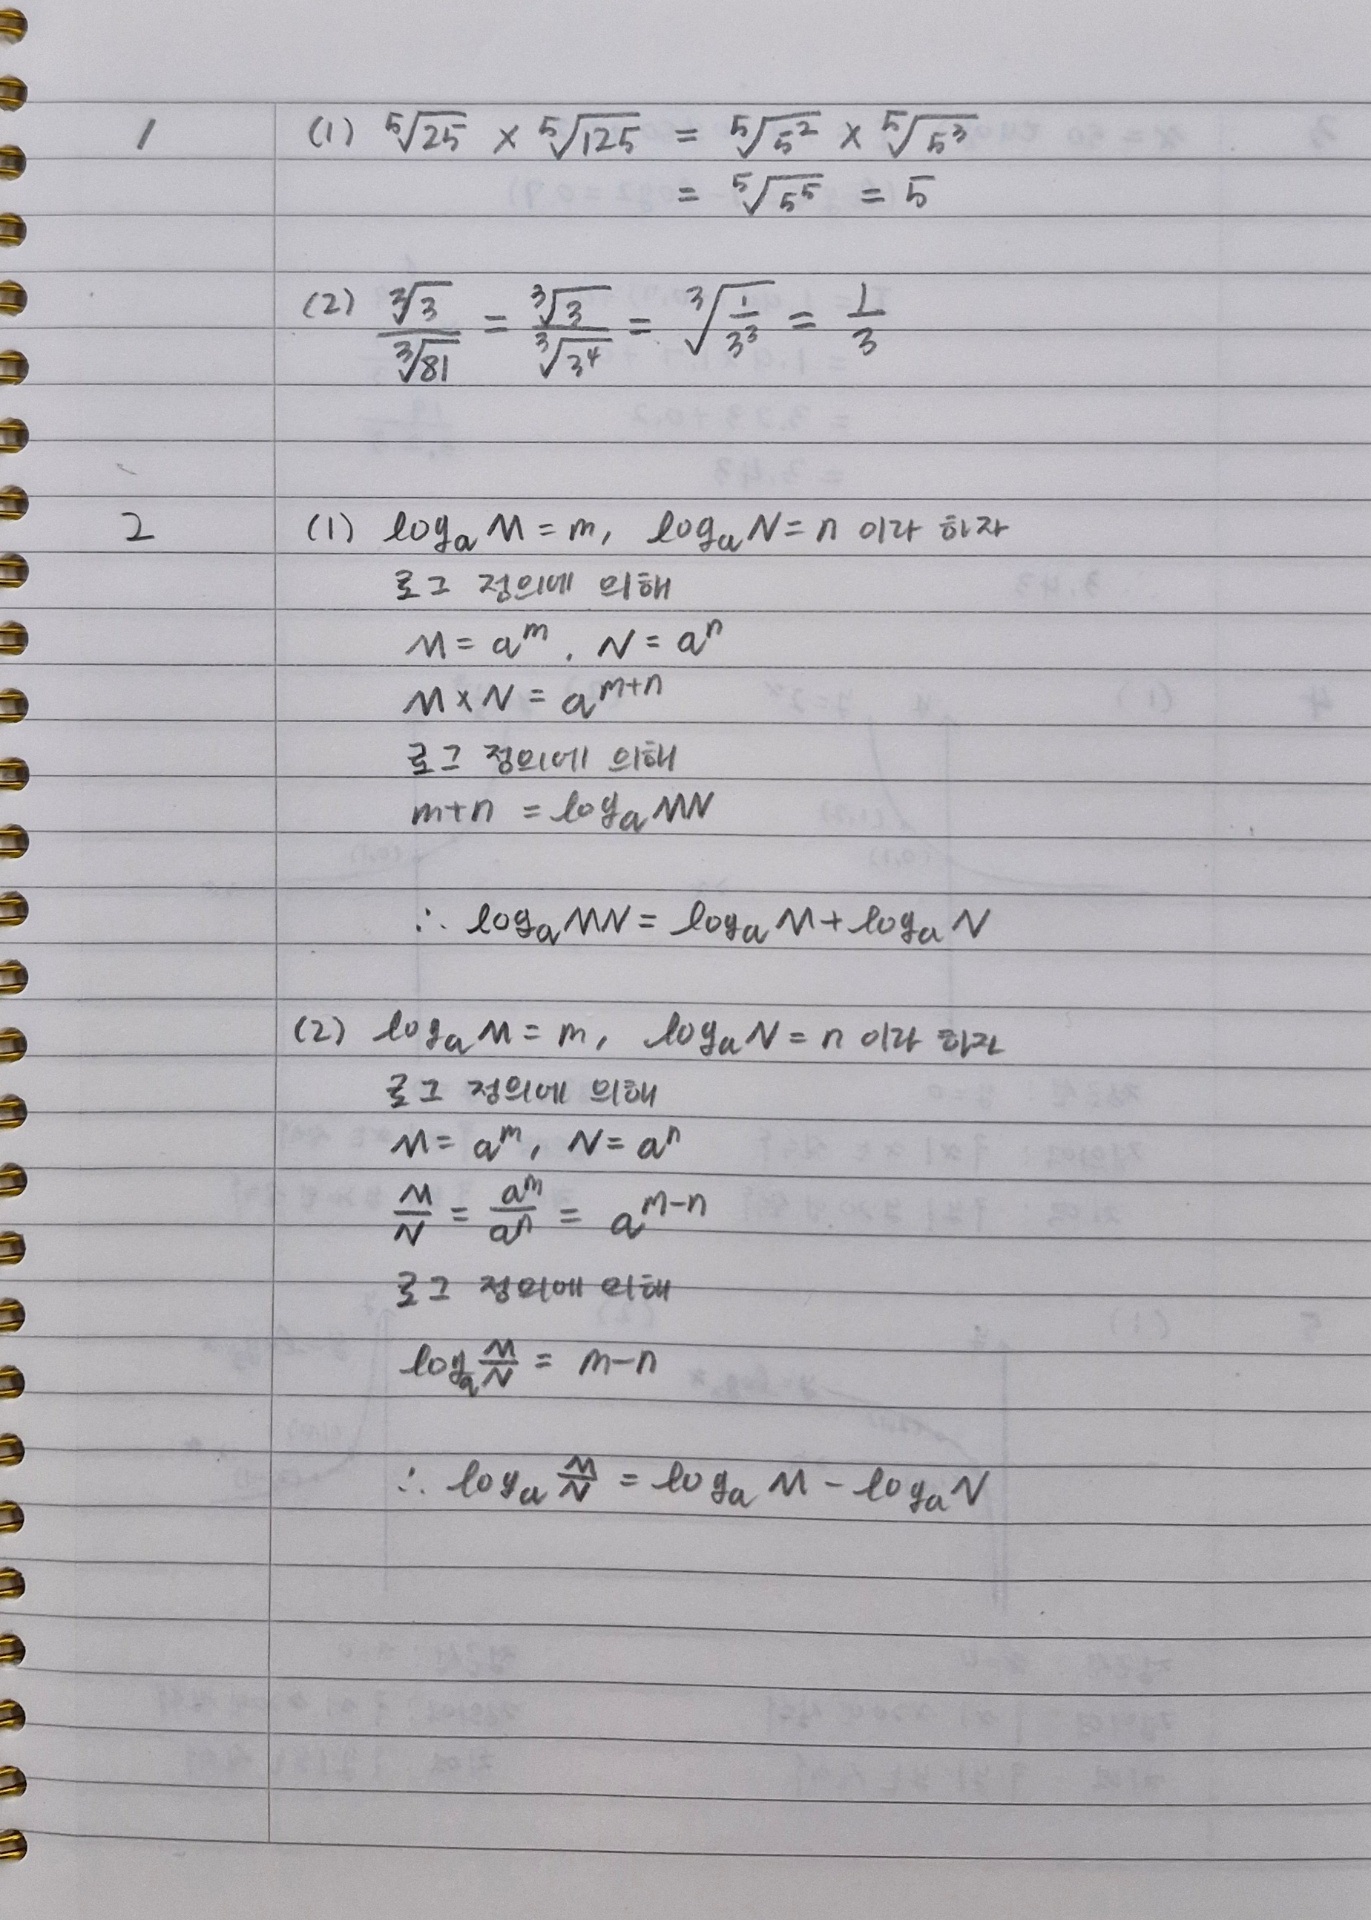 1 (1) ⁵√25 × ⁵√125 = ⁵√5² × ⁵√5³
= ⁵√5⁵ = 5
(2) ³√3/³√81 = ³√3/³√3⁴ = ³√(1/3³) = 1/3
2 (1) logₐM = m, logₐN = n 이라 하자
로그 정의에 의해
M = aᵐ, N = aⁿ
M×N = aᵐ⁺ⁿ
로그 정의에 의해
m+n = logₐMN
∴ logₐMN = logₐM + logₐN
(2) logₐM = m, logₐN = n 이라 하자
로그 정의에 의해
M = aᵐ, N = aⁿ
M/N = aᵐ/aⁿ = aᵐ⁻ⁿ
로그 정의에 의해
logₐ M/N = m-n
∴ logₐ M/N = logₐM - logₐN